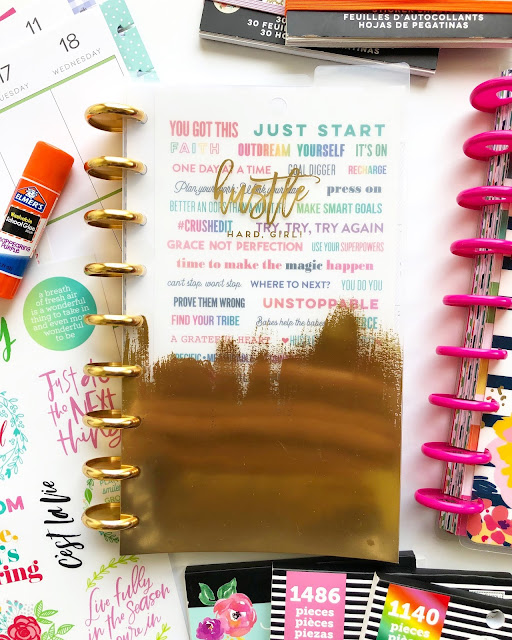 30 FEUILLES D'AUTOCOLLANTS
30 HOJAS DE PEGATINAS
30 FEUIL
30 HO
17
TUESDAY
18
WEDNESDAY
ELMER'S
Washable
School Glue
DISAPPEARING
PURPLE
YOU GOT THIS JUST START
FAITH OUTDREAM YOURSELF IT'S ON
ONE DAY AT A TIME GOAL DIGGER RECHARGE
hustle
press on
HARD, GIRL!
MAKE SMART GOALS
#CRUSHEDIT TRY, TRY, TRY AGAIN
GRACE NOT PERFECTION USE YOUR SUPERPOWERS
time to make the magic happen
can't stop. won't stop WHERE TO NEXT? YOU DO YOU
PROVE THEM WRONG UNSTOPPABLE
FIND YOUR TRIBE Babes help the babes
A GRATEFUL HEART
a breath
of fresh air
is a wonderful
thing to take in
and even more
wonderful
to be
Just do
the NEXT
thing
c'est la vie
Live fully
in the season
you're in
1486
pieces
pièces
piezas
1140
pieces
pièces
piezas